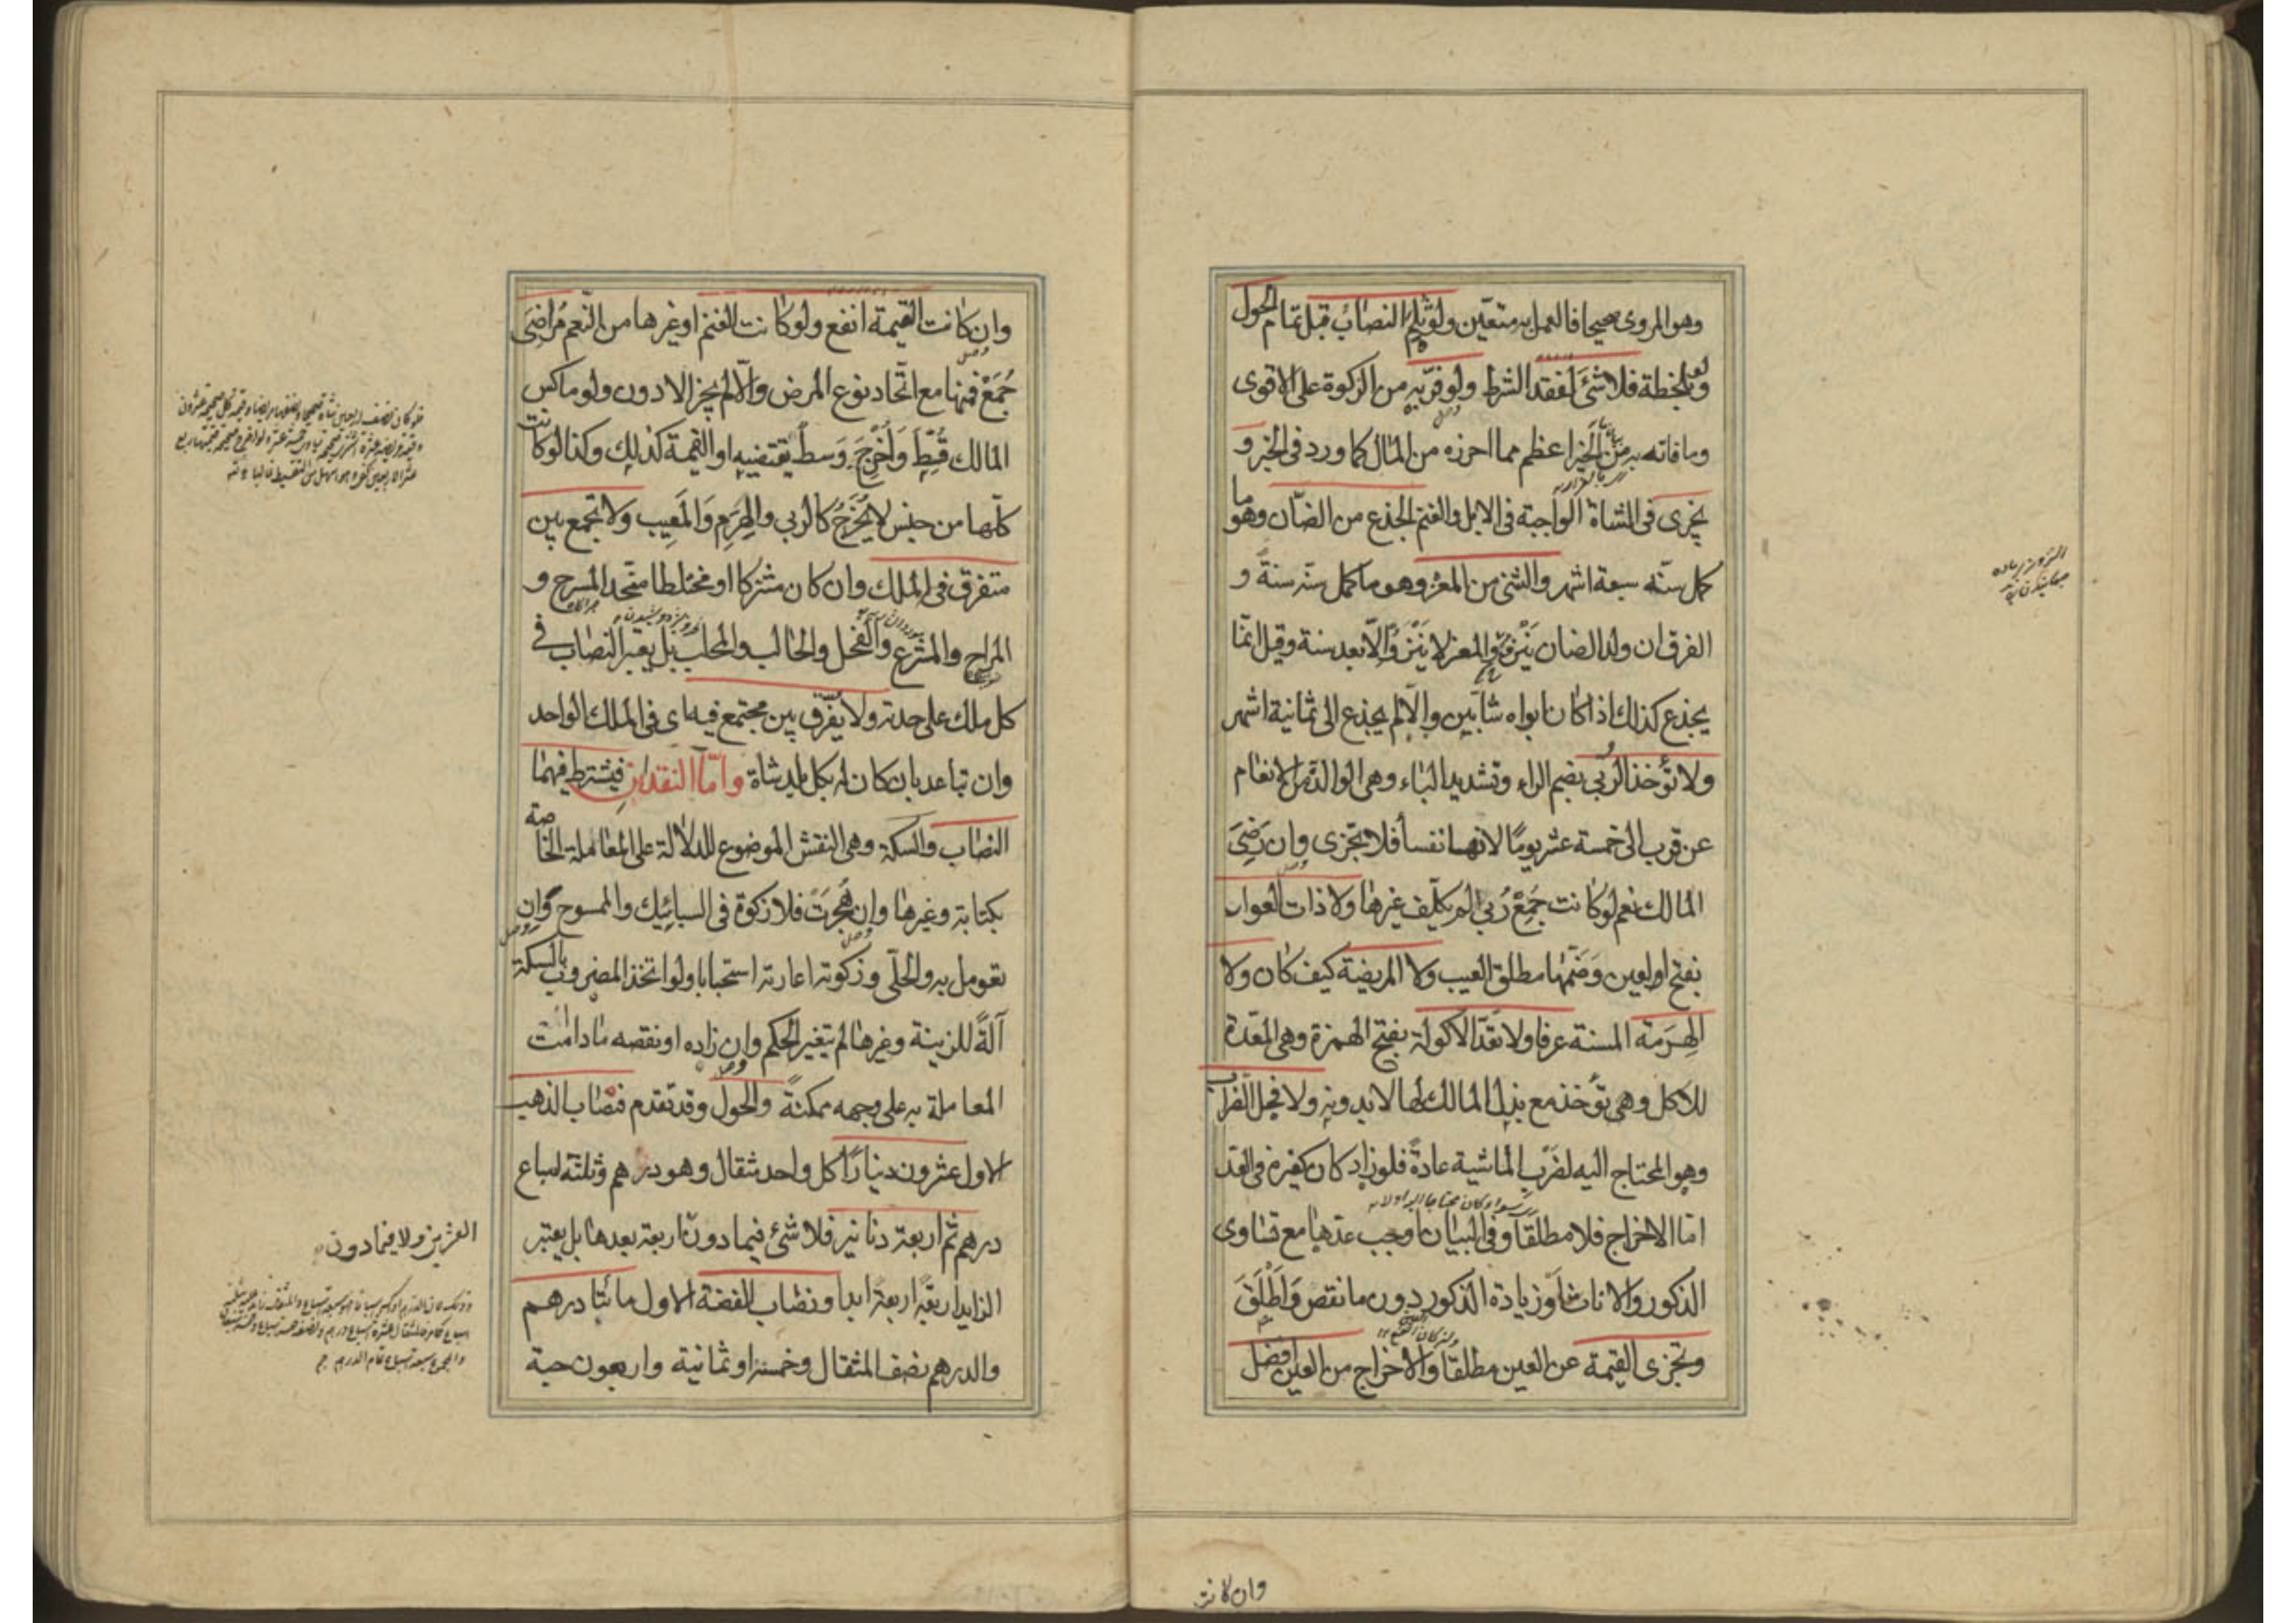 وهو المروى صحيحا فالعمل به متعين ولو ثلم النصاب قبل تمام الحول
ولو بلحظة فلا شئ لفقد الشرط ولو فر به من الزكوة على الاقوى
وما فاته به من الخير اعظم مما احرزه من المال كما ورد فى الخبر و
يجزى فى الشاة الواجبة فى الابل والغنم الجذع من الضان وهو ما
كمل سنه سبعة اشهر والثنى من المعز وهو ما كمل سنه سنة و
الفرق ان ولد الضان ينزو والمعز لا ينزو الا بعد سنة وقيل انما
يجذع كذلك اذا كان ابواه شابين والا لم يجذع الى ثمانية اشهر
ولا تؤخذ الربى بضم الراء وتشديد الباء وهى الوالد من الانعام
عن قرب الى خمسة عشر يوما لانها نفسا فلا تجزى وان رضى
المالك نعم لو كانت جمع ربى لم يكلف غيرها ولا ذات العوار
بفتح اوله عين وضمها مطلق العيب ولا المريضة كيف كان ولا
الهرمة المسنة عرفا ولا تعد الاكولة بفتح الهمزة وهى المعدة
للاكل وهى تؤخذ مع بذل المالك لها لا بدونه ولا فحل الضراب
وهو المحتاج اليه لضرب الماشية عادة فلو زاد كان كغيره فى العد
سواء كان محتاجا اليه او لا
اما الاخراج فلا مطلقا وفى البيان اوجب عدها مع تساوى
الذكور والاناث او زيادة الذكور دون ما نقص واطلق
ولو كان انفع
وتجزى القيمة عن العين مطلقا والاخراج من العين افضل
وان كانت
وان كانت القيمة انفع ولو كانت الغنم او غيرها من النعم مراضى
جمع فمنها مع اتحاد نوع المرض والا لم يجز الادون ولو ماكس
المالك قسط واخرج وسط يقتضيه او القيمة كذلك وكذا لو كانت
كلها من جنس لا يخرج كالربى والهرم والمعيب ولا يجمع بين
متفرق فى الملك وان كان مشتركا او مختلطا متحد المسرح و
المراح والمشرع والفحل والحالب والمحلب بل يعتبر النصاب فى
كل ملك على حدته ولا يفرق بين مجتمع فيه اى فى الملك الواحد
وان تباعد بان كان له بكل بلد شاة واما النقدان فيشترط فيهما
النصاب والسكة وهى النقش الموضوع للدلالة على المعاملة الخاصة
بكتابة وغيرها وان هجرت فلا زكوة فى السبائك والممسوح وان
تعومل به والحلى وزكوته اعارته استحبابا ولو اتخذ المضروب بالسكة
آلة للزينة وغيرها لم يتغير الحكم وان زاده او نقصه ما دامت
المعاملة به على وجهه ممكنة والحول وقد تقدم فنصاب الذهب
الاول عشرون دينارا كل واحد مثقال وهو درهم وثلثة اسباع
درهم ثم اربعة دنانير فلا شئ فيما دون اربعة بعدها بل يعتبر
العشرين ولا فيما دون
الزايد اربعة اربعة ابدا ونصاب الفضة الاول مائتا درهم
والدرهم نصف المثقال وخمسه او ثمانية واربعون حبة